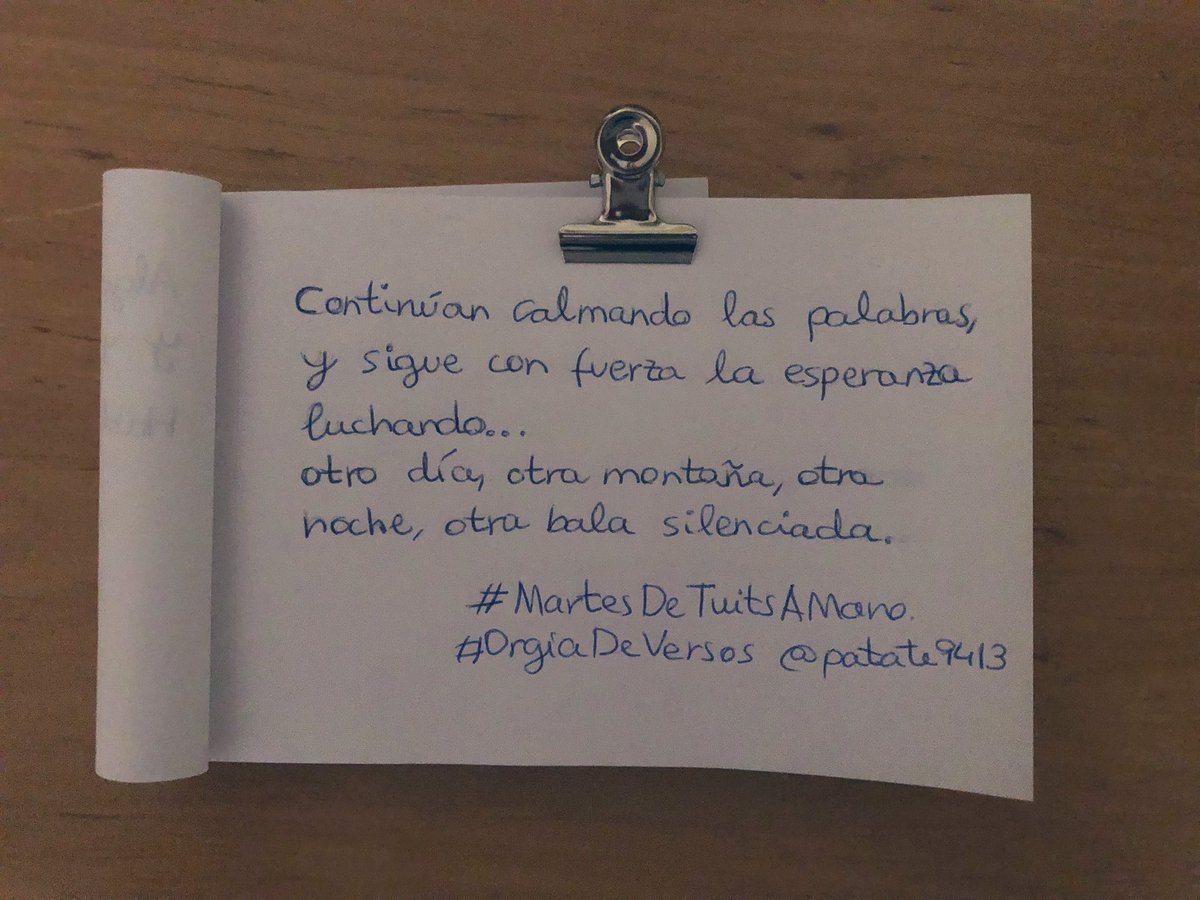 Continúan calmando las palabras,
y sigue con fuerza la esperanza
luchando...
otro día, otra montaña, otra
noche, otra bala silenciada.
#MartesDeTuitsAMano.
#OrgiaDeVersos @patate9413